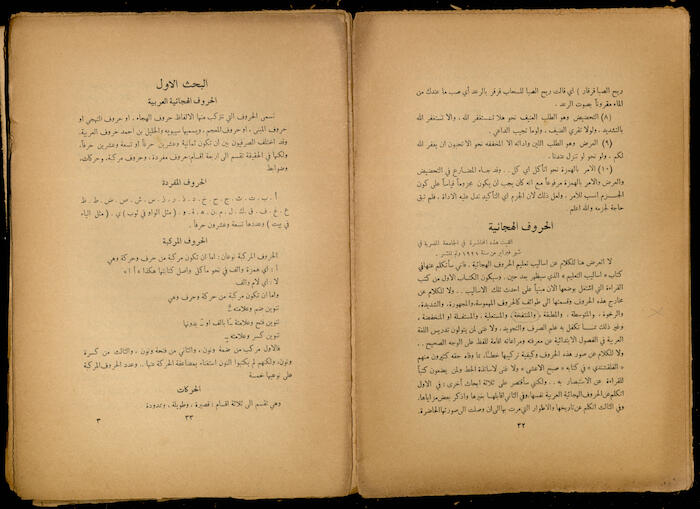 ربح الصبا قرقار ) اي قالت ربح الصبا للسحاب قرقر بالرعد أي صب ما عندك من
الماء مقروناً بصوت الرعد .
(٨) التحضيض وهو الطلب العنيف نحو هلا تستغفر الله ، والا تستغفر الله
بالتشديد . ولولا تقري الضيف . ولوما تجيب الداعي .
(٩) العرض وهو الطلب اللين واداته الا المخففه نحو الا تحبون ان يغفر الله
لكم . ولو نحو لو تنزل عندنا .
(١٠) الامر بالهمزة نحو أتأكل اي كل . . وقد جاء المضارع في التحضيض
والعرض والامر بالهمزة مرفوعاً مع انه كان يجب ان يكون مجزوماً قياساً على كون
الجزم انسب للامر ، ولعل ذلك لان الجرم اي التأكيد تدل عليه الاداة . فلم تبق
حاجة لجزمه والله اعلم .
الحروف الهجائية
القيت هذه المحاضرة في الجامعة المصرية في
شهر فبراير من سنة ١٩٢٦ ولم تنشر .
لا أعرض هنا للكلام عن اساليب تعليم الحروف الهجائية . فاني سأتكلم عنها في
كتاب « اساليب التعليم » الذي سيظهر بعد حين . وسيكون الكتاب الاول من كتب
القراءة التي اشتغل بوضعها الان مبنياً على احدث تلك الاساليب . . ولا للكلام عن
مخارج هذه الحروف وقسمتها الى طوائف كالحروف المهموسة، والمجهورة، والشديدة،
والرخوة ، والمتوسطة ، والمطبقة، (والمنفتحة) والمستعلية ، والمستفلة او المنخفضة ،
وغير ذلك مما تكفل به علم الصرف والتجويد . ولا غنى لمن يتولون تدريس اللغة
العربية في الفصول الابتدائية عن معرفته ومراعاته اقامة للفظ على الوجه الصحيح . .
ولا للكلام عن صور هذه الحروف وكيفية تركبها خطاً، مما وفاه حقه كثيرون منهم
« القلقشندي » في كتابه « صبح الاعشى » ولا غنى لاساتذة الخط ولمن يضعون كتباً
للقراءة عن الاستبصار به . . ولكني سأقتصر على ثلاثة ابحاث أخرى : في الاول
اتكلم عن الحروف الهجائية العربية نفسها، وفي الثاني اقابلها بغيرها واذكر بعض مزاياها.
وفي الثالث اتكلم عن تاريخها والاطوار التي مرت بها الى ان وصلت الى صورتها الحاضرة.
٣٢
البحث الاول
الحروف الهجائية العربية
تسمى الحروف التي تتركب منها الالفاظ حروف الهجاء . او حروف التهجي او
حروف المبنى . او حروف المعجم . ويسميها سيبويه والخليل بن احمد حروف العربية.
وقد اختلف الصرفيون بين ان تكون ثمانية وعشرين حرفاً او تسعة وعشرين حرفاً.
ولكنها في الحقيقة تقسم الى اربعة اقسام: حروف مفردة ، وحروف مركبة، وحركات،
وضوابط
الحروف المفردة
أ . ب . ت . ث . ج . ح . خ . د . ذ . ر . ز . س . ش . ص . ض . ط . ظ
ع . غ . ف . ق . ك . ل . م . ن . ه . و . ( مثل الواو في ثوب ) ي . ( مثل الياء
في بيت ) وعددها تسعة وعشرون حرفاً .
الحروف المركبة
الحروف المركبة نوعان : اما ان تكون مركبة من حرف وحركة وهي
آ : اي همزة والف في نحو مآكل واصل كتابتها هكذا « أ ا »
لا : اي لام والف
واما ان تكون مركبة من حركة وحرف وهي
تنوين ضم وعلامته ـٌ
تنوين فتح وعلامته ـً بالف او ـً بدونها
تنوين كسر وعلامته ـٍ
فالاول مركب من ضمة ونون ، والثاني من فتحة ونون ، والثالث من كسرة
ونون، ولكنهم لم يكتبوا النون استغناء بمضاعفة الحركة عنها . . وعدد الحروف المركبة
على نوعيها خمسة
الحركات
وهي تقسم الى ثلاثة اقسام : قصيرة ، وطويلة ، وممدودة
٣٣
٣